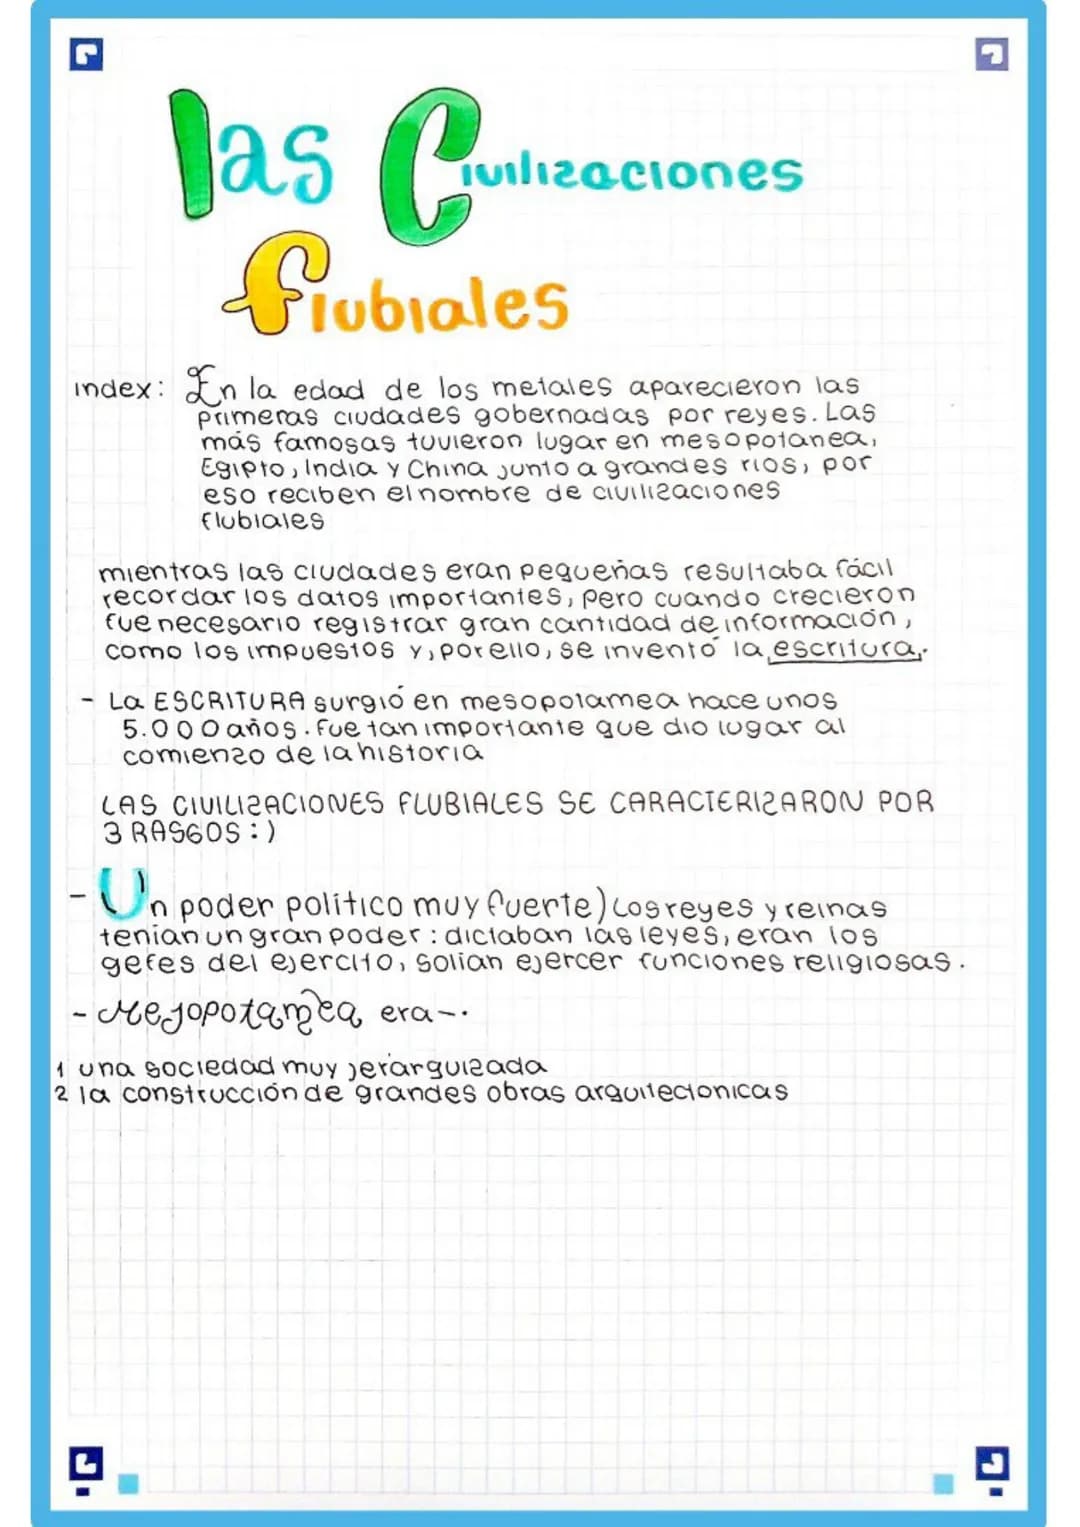 las Civilizaciones
flubiales
index: En la edad de los metales aparecieron las
primeras ciudades gobernadas por reyes. Las
más famosas tuvieron lugar en mesopotanea,
Egipto, India y China junto a grandes rios, por
eso reciben el nombre de civilizaciones
flubiales
mientras las ciudades eran pequeñas resultaba fácil
recordar los datos importantes, pero cuando crecieron
fue necesario registrar gran cantidad de información,
como los impuestos y, por ello, se inventó la escritura,.
- La ESCRITURA surgió en mesopotamea hace unos
5.000 años. Fue tan importante que dio lugar al
comienzo de la historia
LAS CIVILIZACIONES FLUBIALES SE CARACTERIZARON POR
3 RASGOS :)
- Un poder político muy fuerte) Los reyes y reinas
tenían un gran poder: dictaban las leyes, eran los
gefes del ejercito, solían ejercer funciones religiosas.
- Mesopotamea era-.
1 una sociedad muy jerarquizada
2 la construcción de grandes obras arquitectonicas